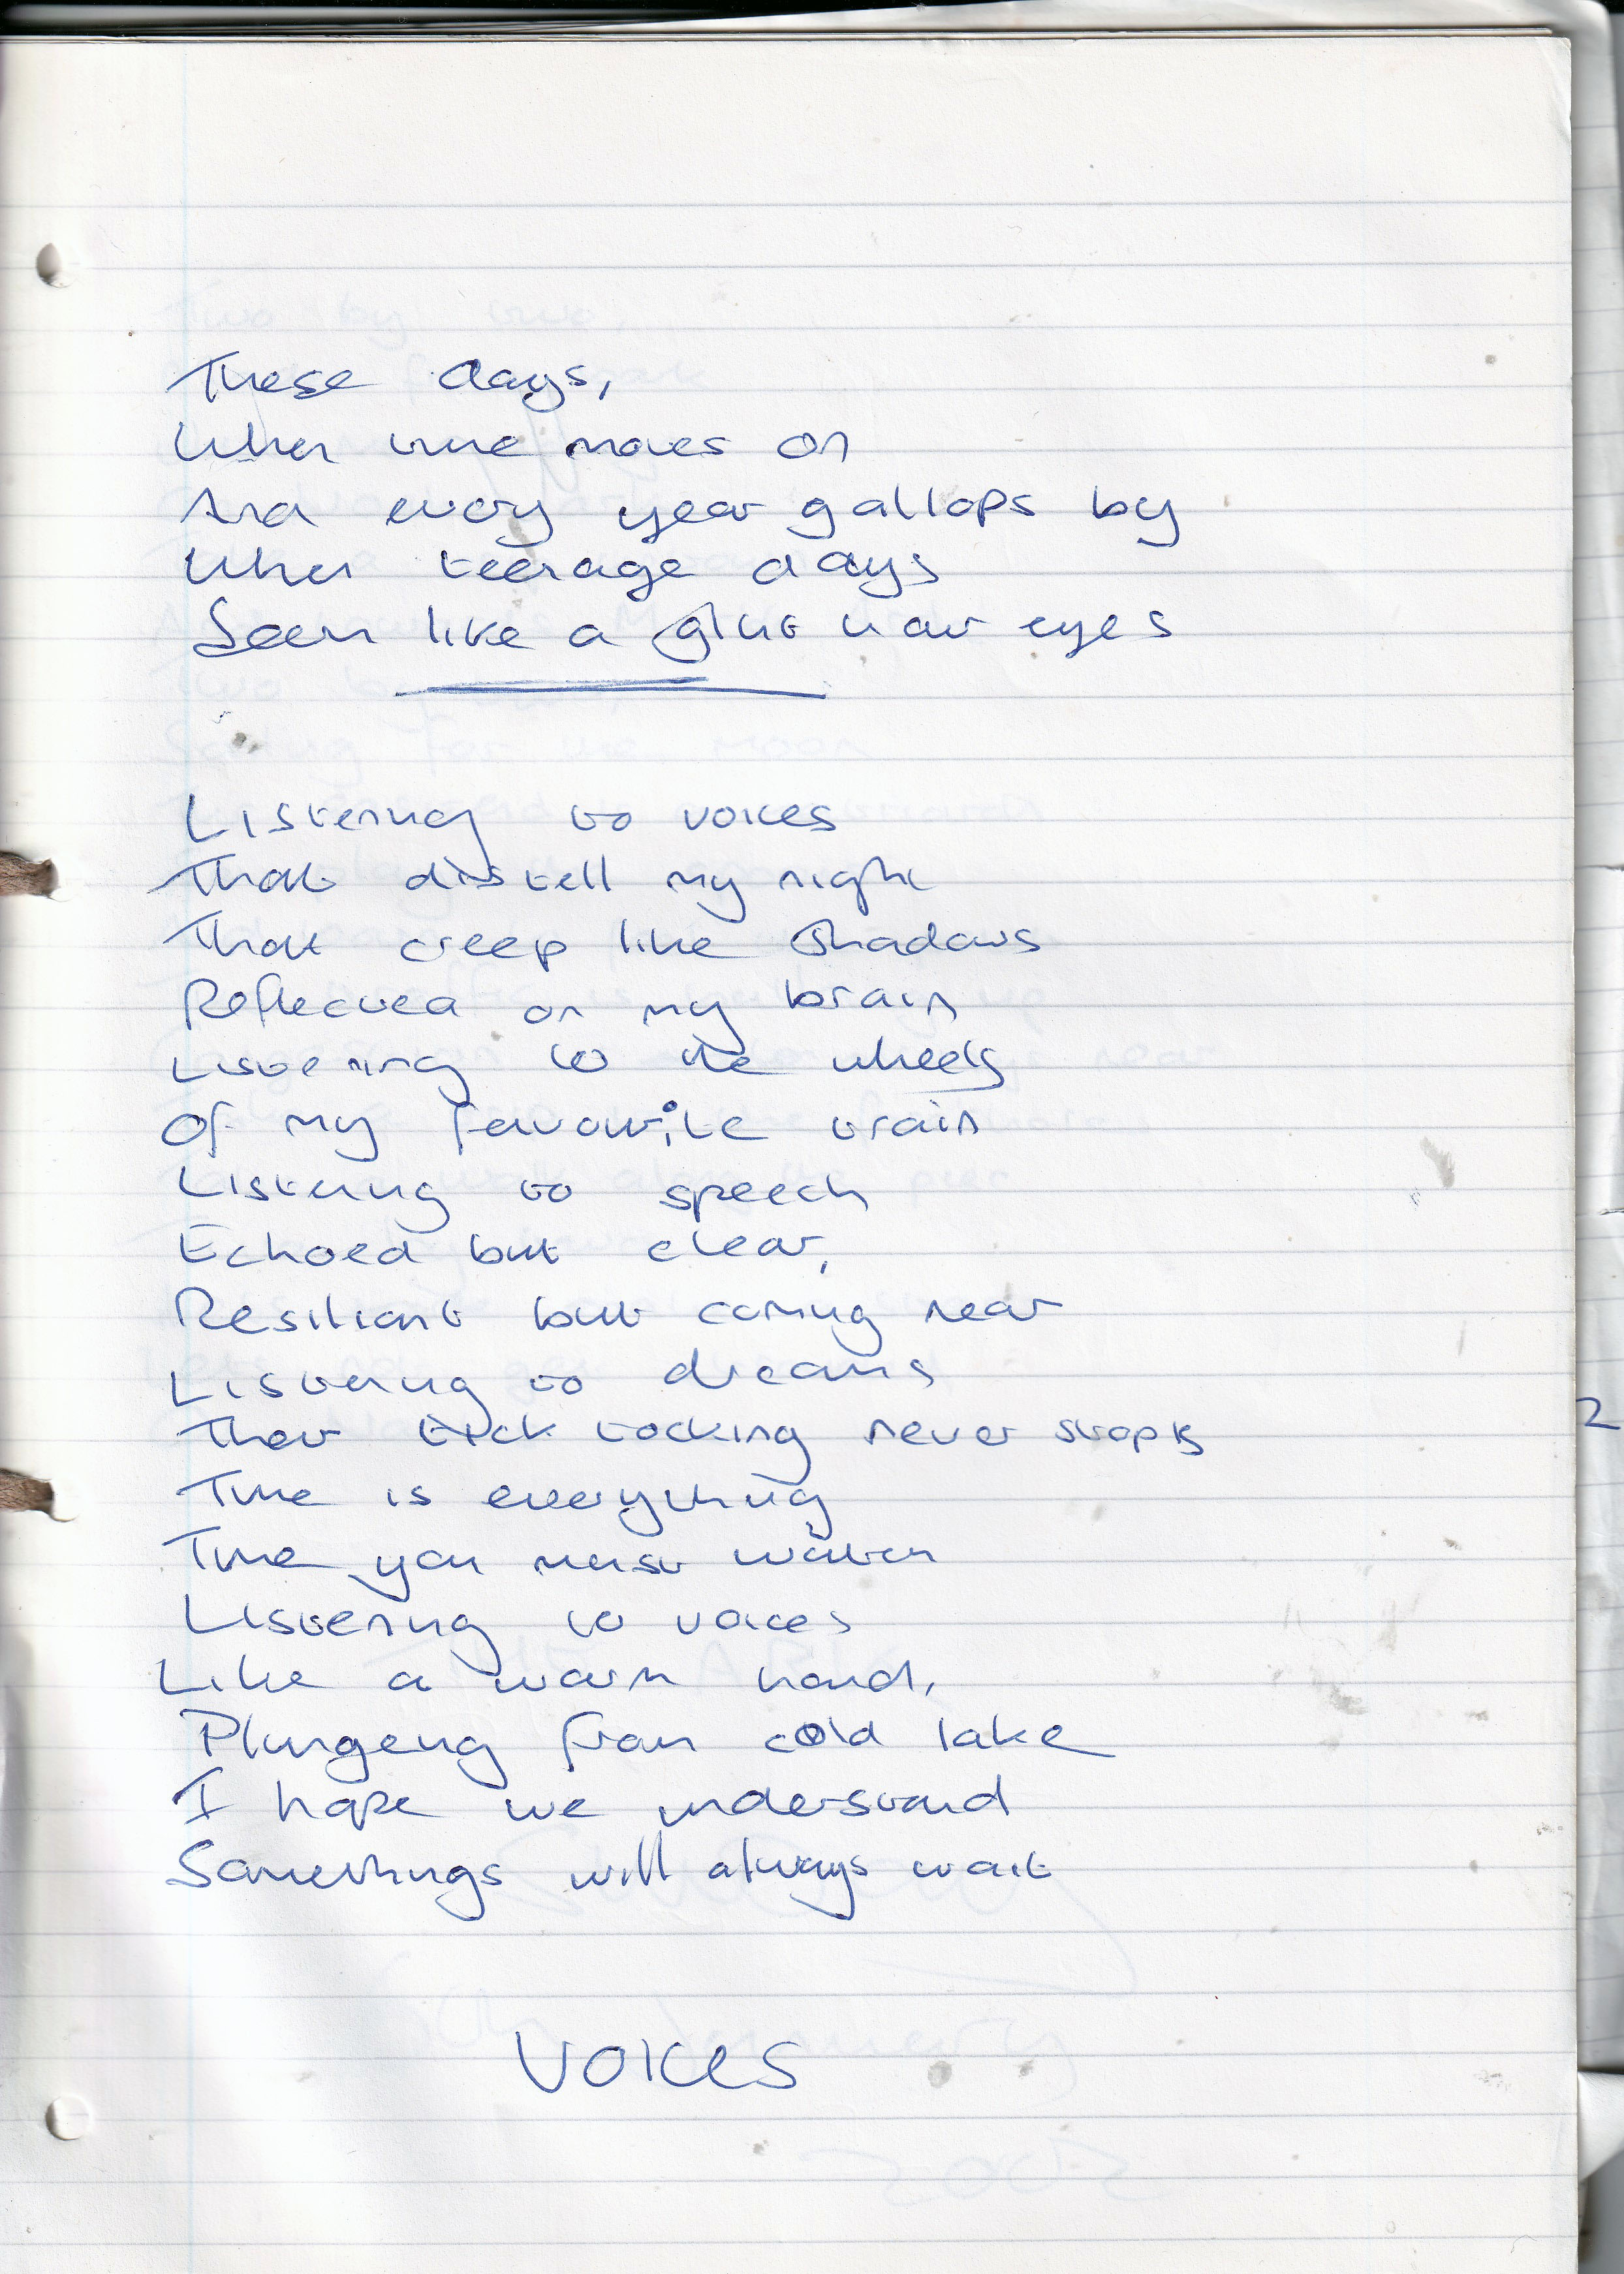 These days,
When time moves on
And every year gallops by
When teenage days
Seem like a glint in our eyes
Listening to voices
That distell my night
That creep like shadows
Reflected on my brain
Listening to the wheels
Of my favourite train
Listening to speech
Echoed but clear,
Resiliant but coming near
Listening to dreams
Their tick tocking never stops
Time is everything
Time you must watch
Listening to voices
Like a warm hand,
Plungeing from cold lake
I hope we understand
Somethings will always wait
VOICES